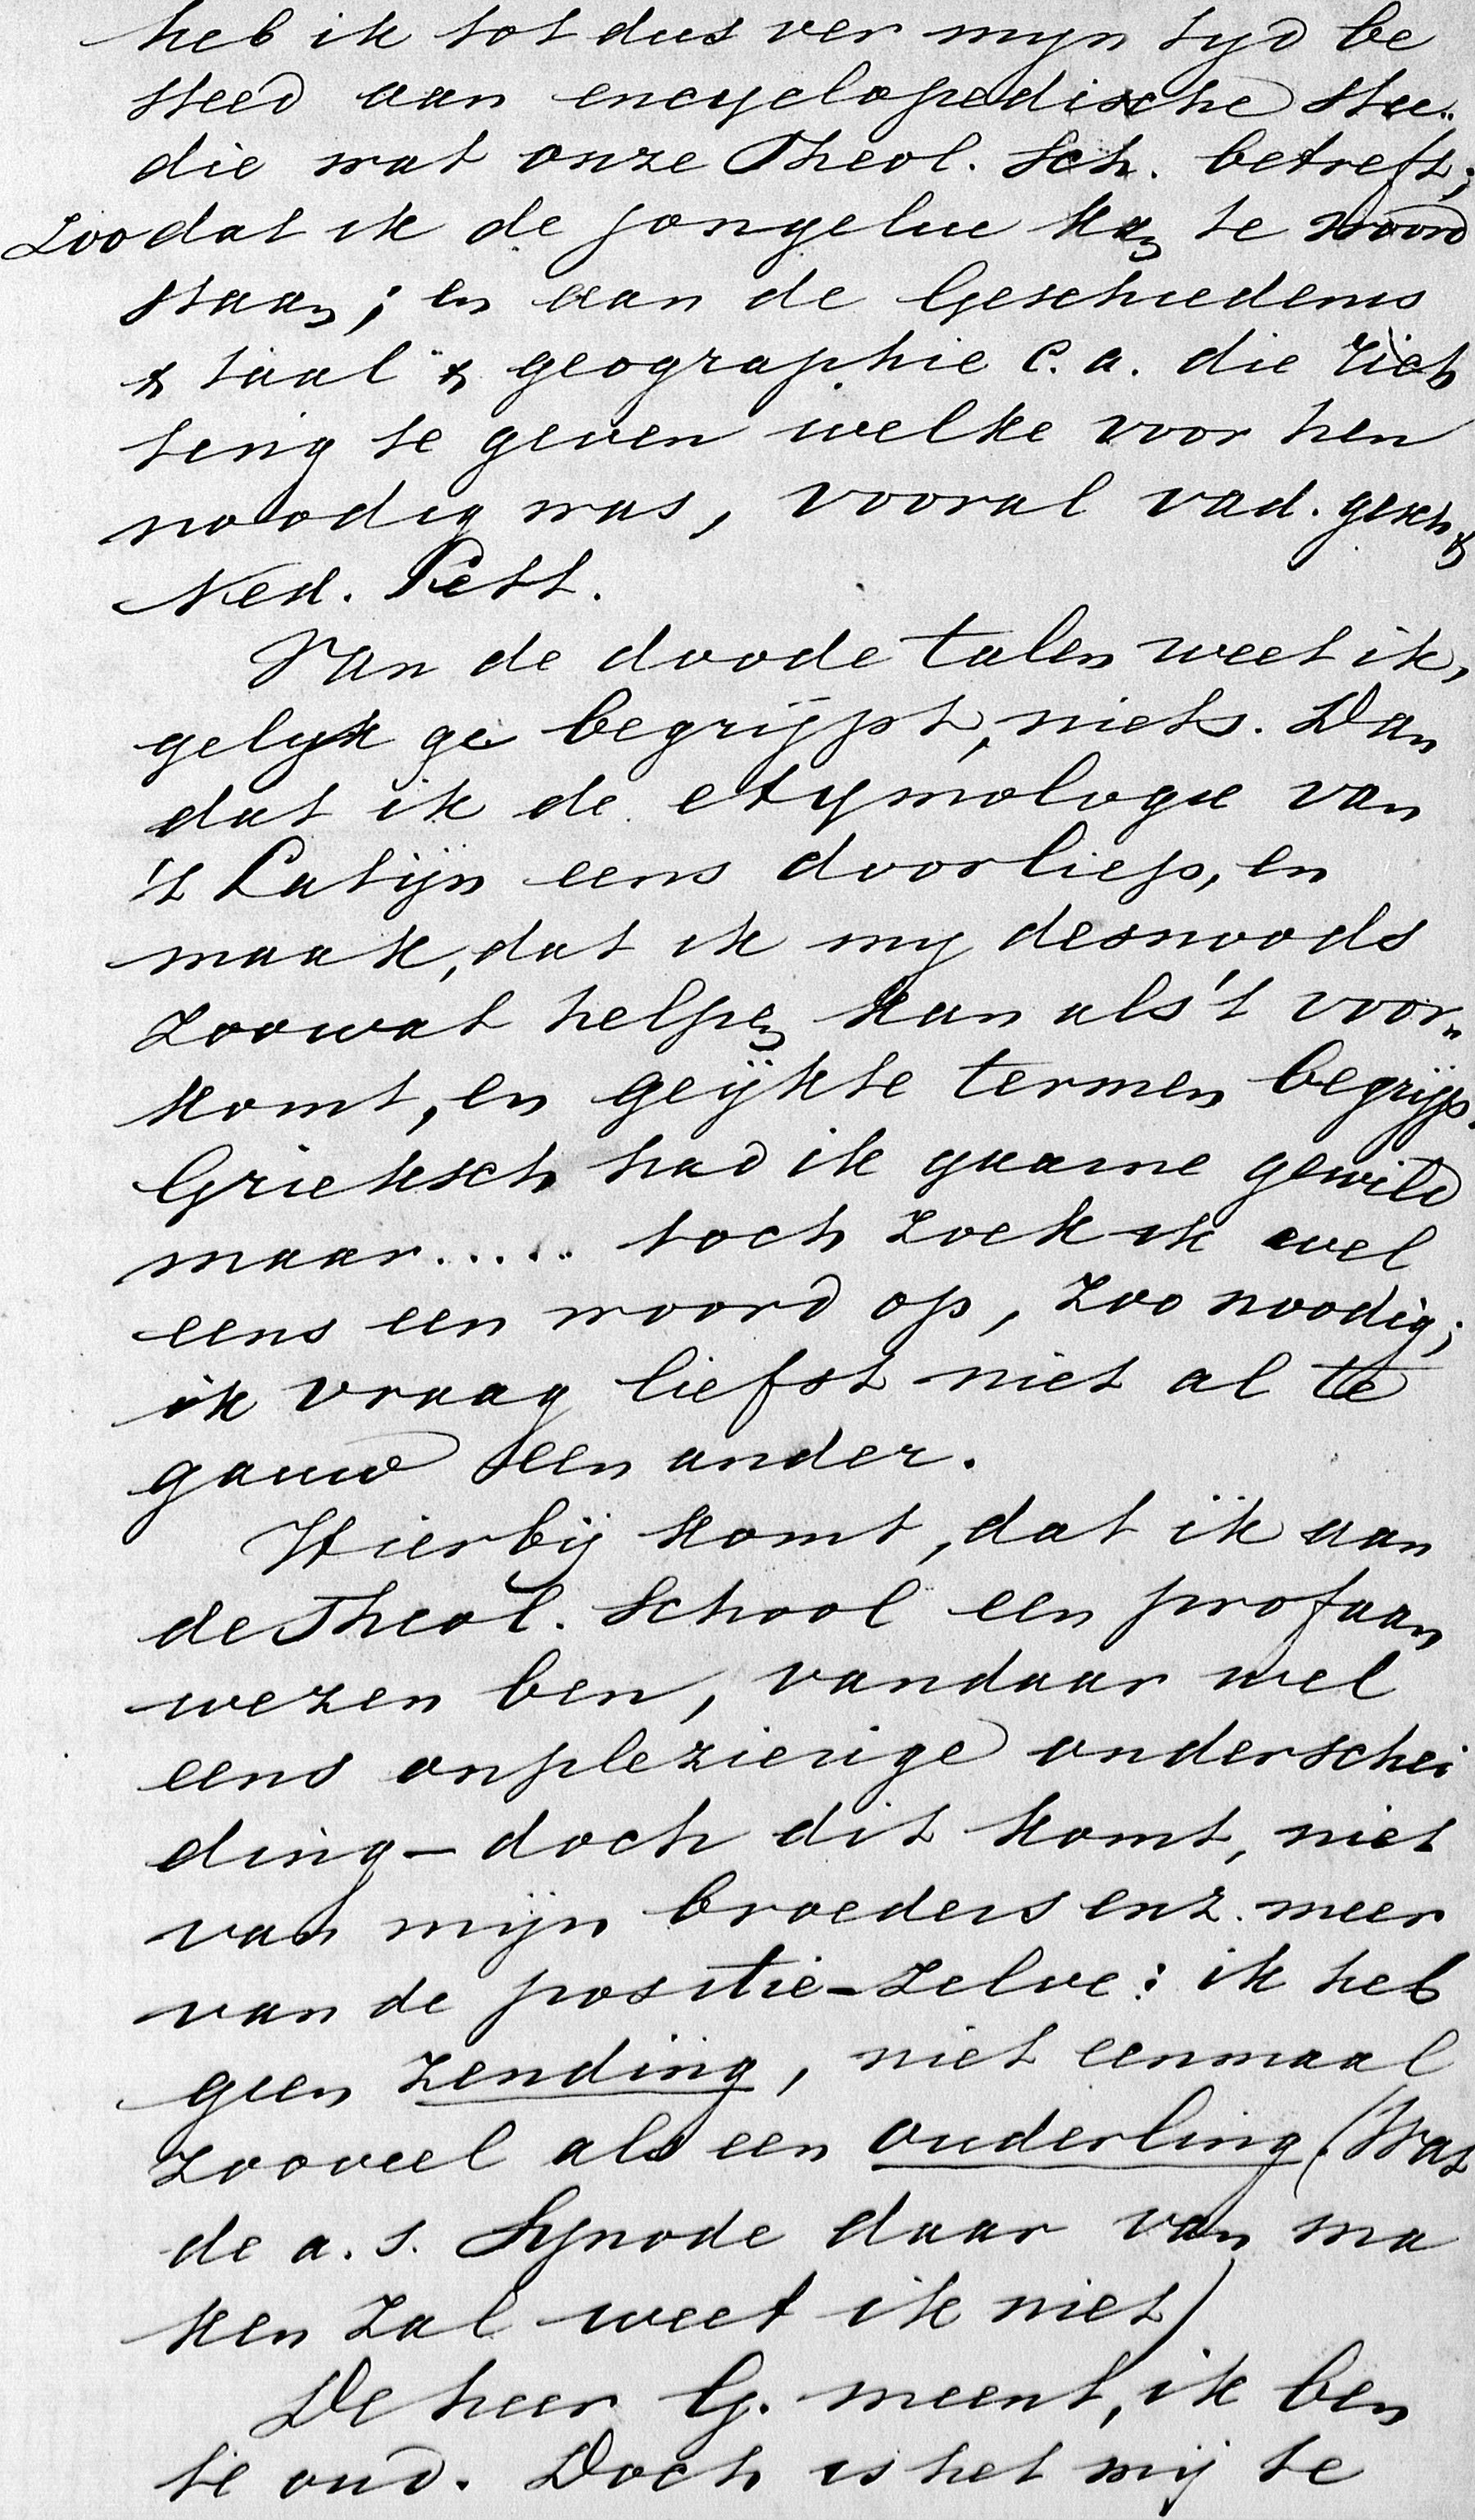 heb ik tot dus ver myn tyd be
steed aan encyclopedische stu„
die wat onze Theol. Sch. betreft;
zoodat ik de jongelui kan te woord
staan; en aan de Geschiedenis
& taal & geographie c.a. die rich
ting te geven welke voor hen
noodig was, vooral vad. gesch &
Ned. Lett.
Van de doode talen weet ik,
gelyk ge begrijpt, niets. Dan
dat ik de etymologie van
't Latijn eens doorliep, en
maak, dat ik my desnoods
zoowat helpen kan als 't voor„
komt, en geijkte termen begrijp.
Grieksch had ik gaarne gewild
maar..... toch zoek ik wel
eens een woord op, zoo noodig;
ik vraag liefst niet al te
gauw een ander.
Hierbij komt, dat ik aan
de Theol. School een profaan
wezen ben, vandaar wel
eens onplezierige onderschei
ding – doch dit komt, niet
van mijn broeders enz. meer
van de positie-zelve: ik heb
geen zending, niet eenmaal
zooveel als een ouderling. (Wat
de a.s. Synode daar van ma
ken zal weet ik niet)
De heer G. meent, ik ben
te oud. Doch is het mij te